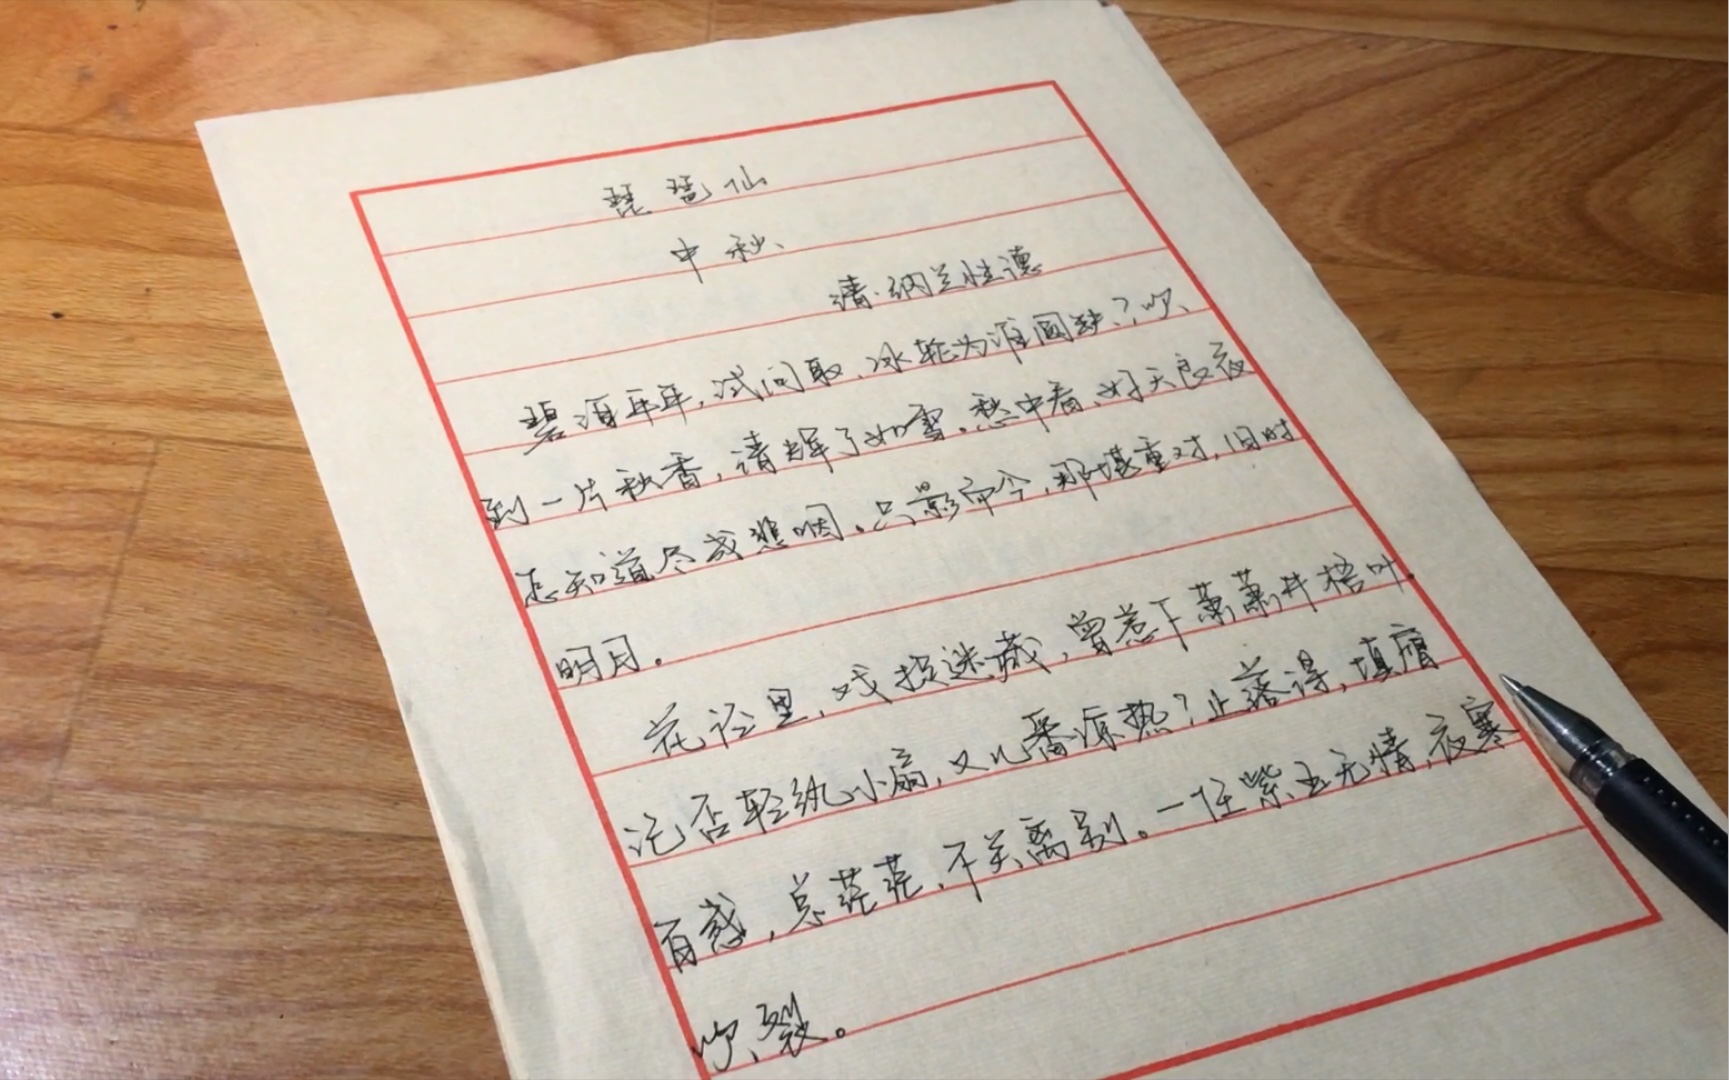 琵琶仙
中秋
清·纳兰性德
碧海年年，试问取、冰轮为谁圆缺？吹
到一片秋香，清辉了如雪。愁中看、好天良夜
怎知道尽成悲咽。只影而今，那堪重对，旧时
明月。
花径里，戏捉迷藏，曾惹下萧萧井梧叶。
记否轻纨小扇，又几番凉热？止落得，填膺
百感，总茫茫，不关离别。一任紫玉无情，夜寒
吹裂。